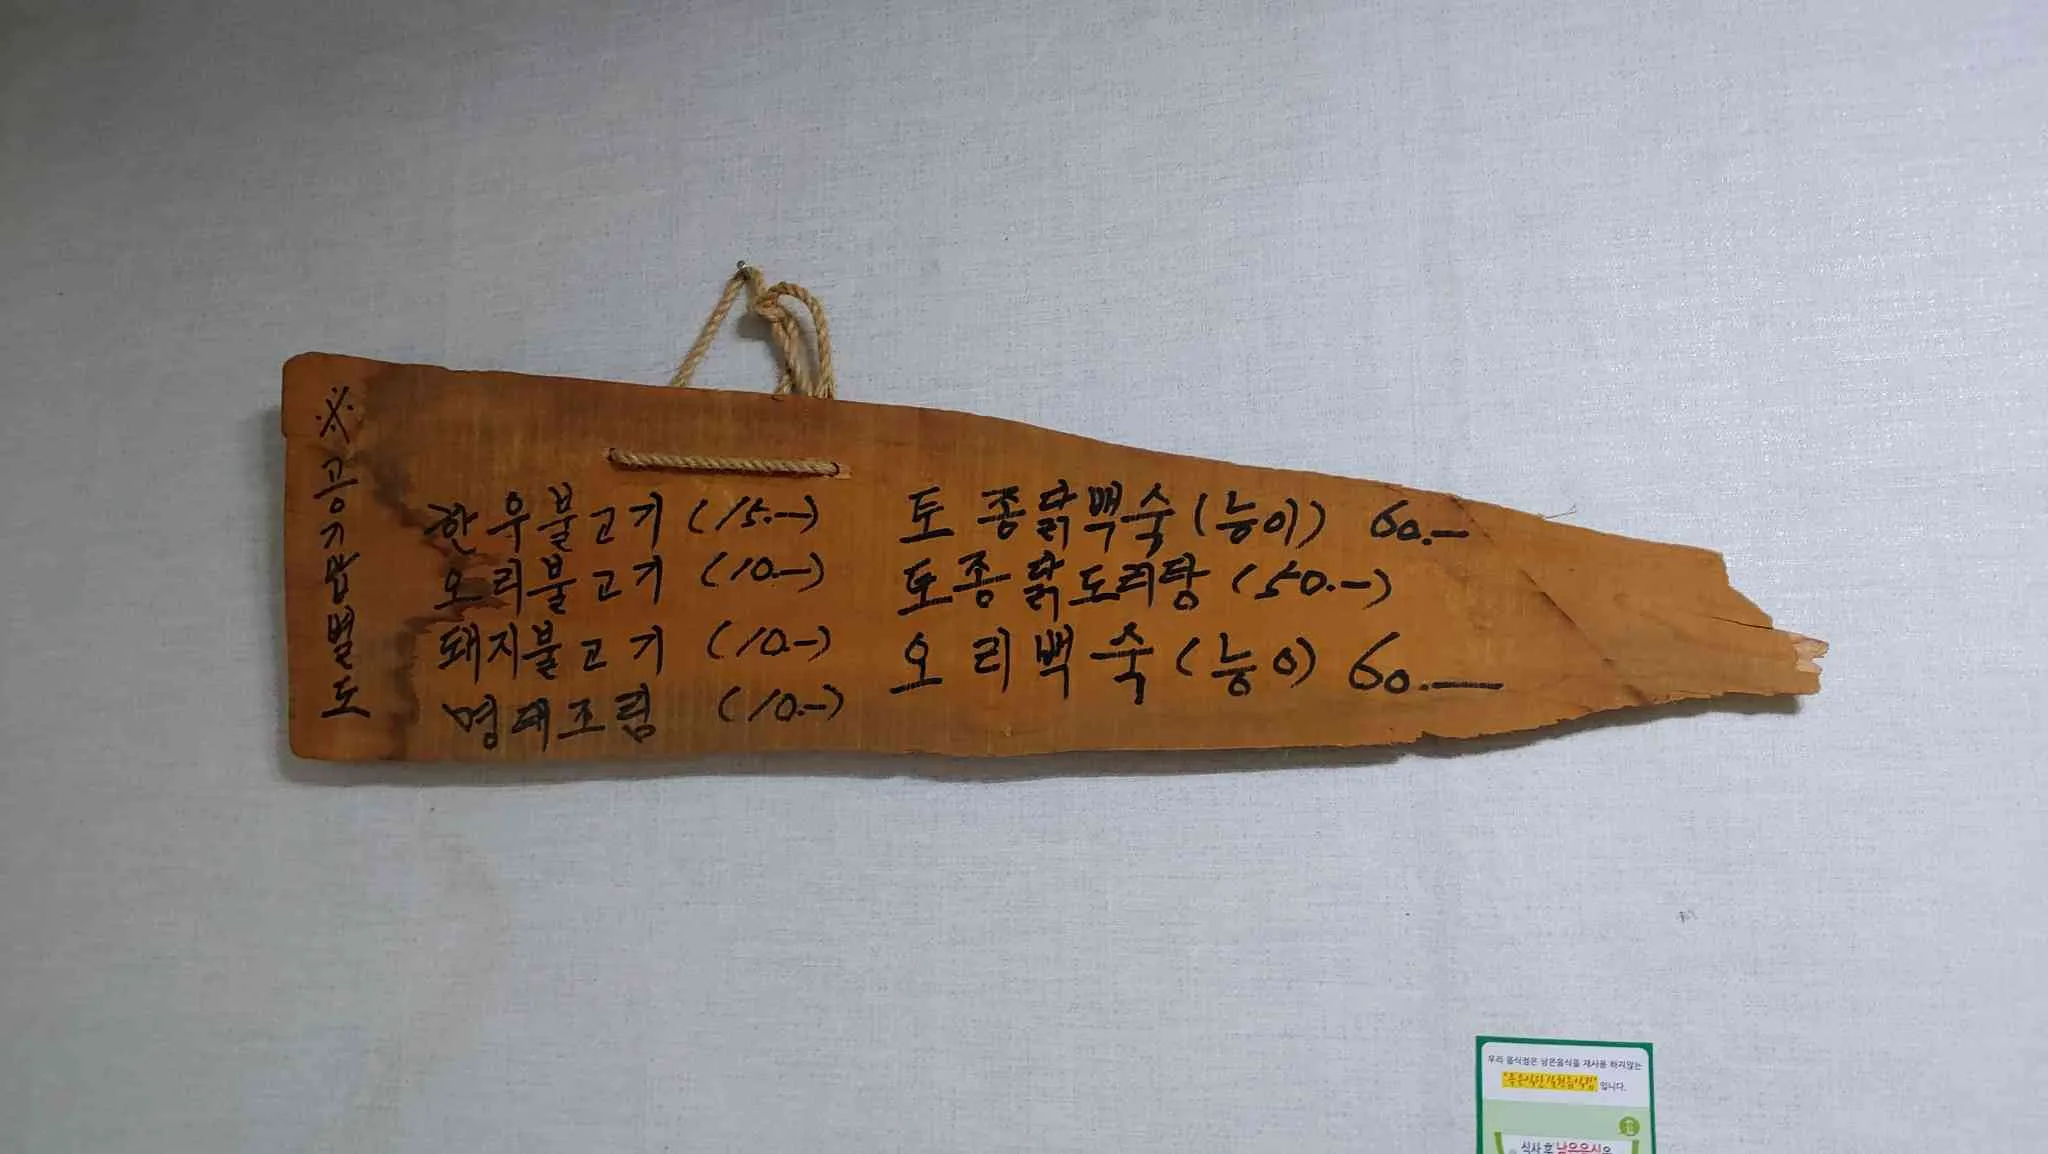 ※ 공기밥별도
한우불고기 (15.-)
오리불고기 (10.-)
돼지불고기 (10.-)
명태조림 (10.-)
토종닭백숙(능이) 60.-
토종닭도리탕 (50.-)
오리백숙(능이) 60.-
우리 음식점은 남은음식을 재사용 하지않는
"좋은식단 실천음식점" 입니다.
식사 후 남은음식은